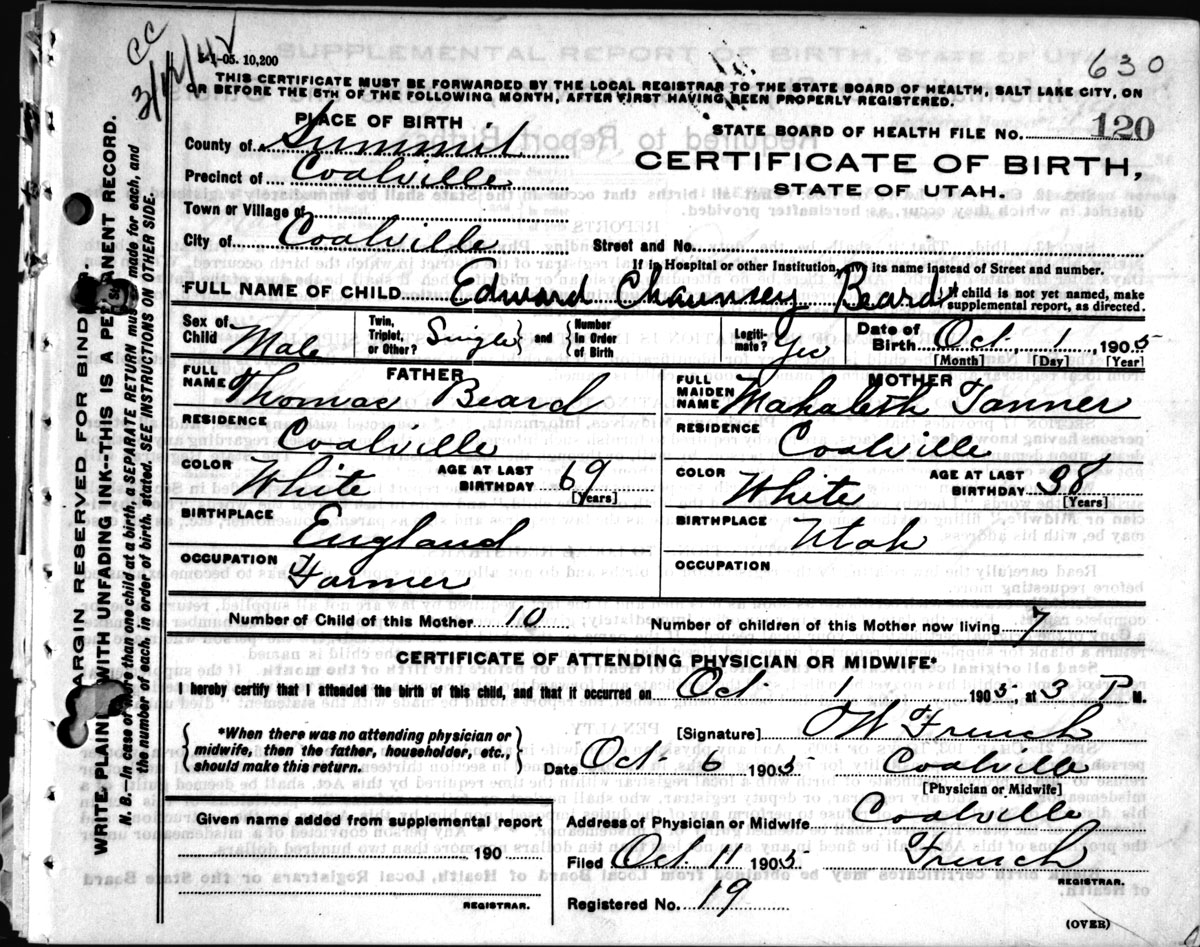 CC
3/14/42
5-1-05. 10,200
630
THIS CERTIFICATE MUST BE FORWARDED BY THE LOCAL REGISTRAR TO THE STATE BOARD OF HEALTH, SALT LAKE CITY, ON
OR BEFORE THE 5TH OF THE FOLLOWING MONTH, AFTER FIRST HAVING BEEN PROPERLY REGISTERED.
PLACE OF BIRTH
STATE BOARD OF HEALTH FILE NO. 120
County of Summit
CERTIFICATE OF BIRTH,
Precinct of Coalville
STATE OF UTAH.
Town or Village of
City of Coalville Street and No.
If in Hospital or other Institution, its name instead of Street and number.
FULL NAME OF CHILD Edward Chaunsey Beard If child is not yet named, make
supplemental report, as directed.
Sex of Child Male Twin, Triplet, or Other? Single and Number in Order of Birth Legiti-mate? Yes Date of Birth Oct. 1 1905
[Month] [Day] [Year]
FATHER
FULL NAME Thomas Beard
RESIDENCE
Coalville
COLOR White AGE AT LAST BIRTHDAY 69
[Years]
BIRTHPLACE England
OCCUPATION Farmer
MOTHER
FULL MAIDEN NAME Mahaleth Tanner
RESIDENCE
Coalville
COLOR White AGE AT LAST BIRTHDAY 38
[Years]
BIRTHPLACE Utah
OCCUPATION
Number of Child of this Mother 10 Number of children of this Mother now living 7
CERTIFICATE OF ATTENDING PHYSICIAN OR MIDWIFE*
I hereby certify that I attended the birth of this child, and that it occurred on Oct 1 1905, at 3 P M.
*When there was no attending physician or
midwife, then the father, householder, etc.,
should make this return.
[Signature] French
Date Oct 6 1905 Coalville
[Physician or Midwife]
Given name added from supplemental report
190
REGISTRAR.
Address of Physician or Midwife Coalville
Filed Oct. 11 1905 French
REGISTRAR.
Registered No. 19
(OVER)
MARGIN RESERVED FOR BINDING.
WRITE PLAINLY WITH UNFADING INK--THIS IS A PERMANENT RECORD.
N. B.--In case of more than one child at a birth, a SEPARATE RETURN must be made for each, and
the number of each, in order of birth, stated. SEE INSTRUCTIONS ON OTHER SIDE.